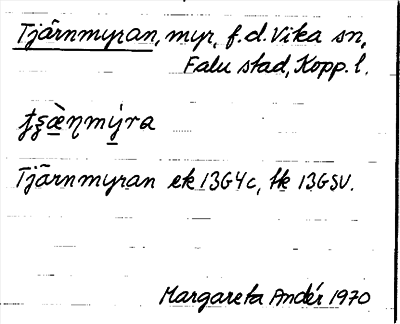 Tjärnmyran, myr, f.d. Vika sn,
Falu stad, Kopp. l.
ƫʂæ̀ɳmýra
Tjärnmyran ek 13G4c, tk 13GSV.
Margareta Andér 1970